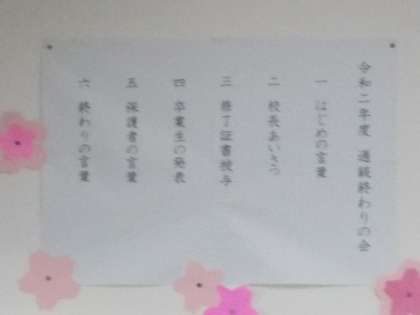 令和二年度 通級終わりの会
一 はじめの言葉
二 校長あいさつ
三 修了証書授与
四 卒業生の発表
五 保護者の言葉
六 終わりの言葉